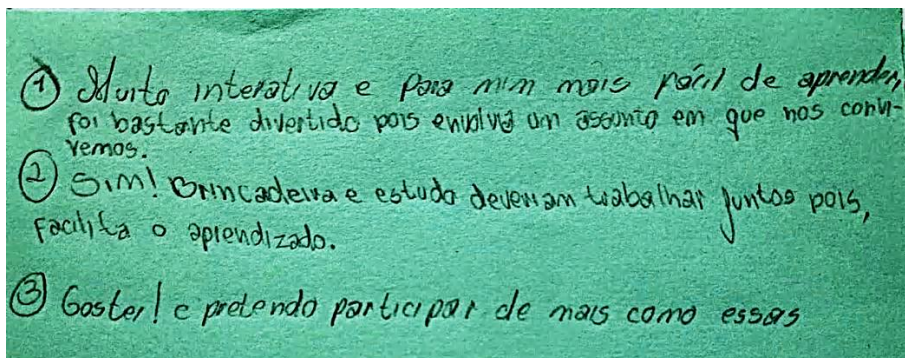 ① Muito interativa e para mim mais fácil de aprender,
foi bastante divertido pois envolve um assunto em que nos convi-
vemos.
② Sim! Brincadeira e estudo deveriam trabalhar juntos pois,
facilita o aprendizado.
③ Gostei! e pretendo participar de mais como essas